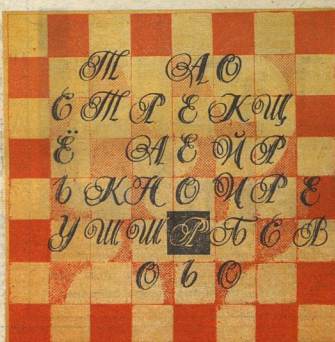 Т АО
ЕТРЕКЩ
Ё АЕЙР
ЬКНОЙРЕ
УШШРБЕВ
ОЬО